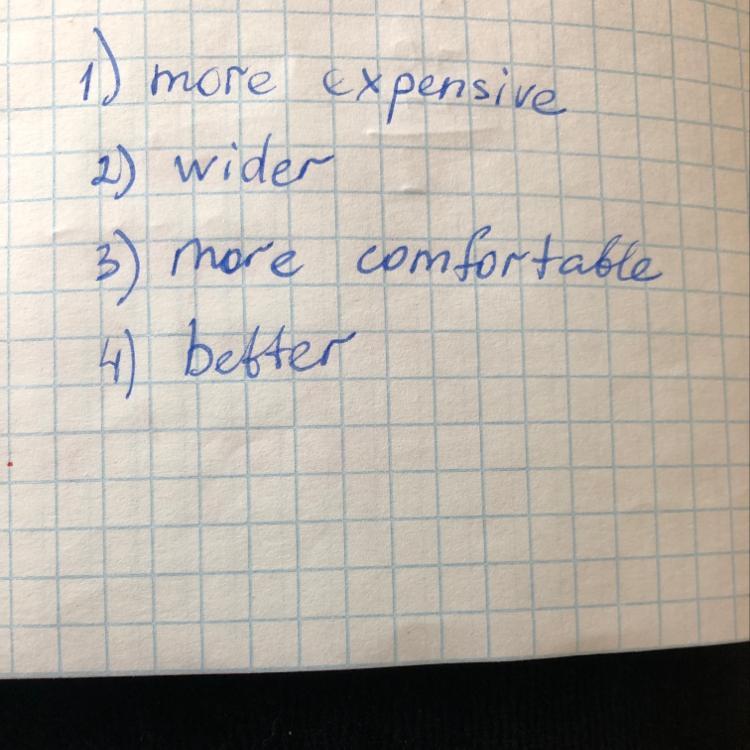 1) more expensive
2) wider
3) more comfortable
4) better